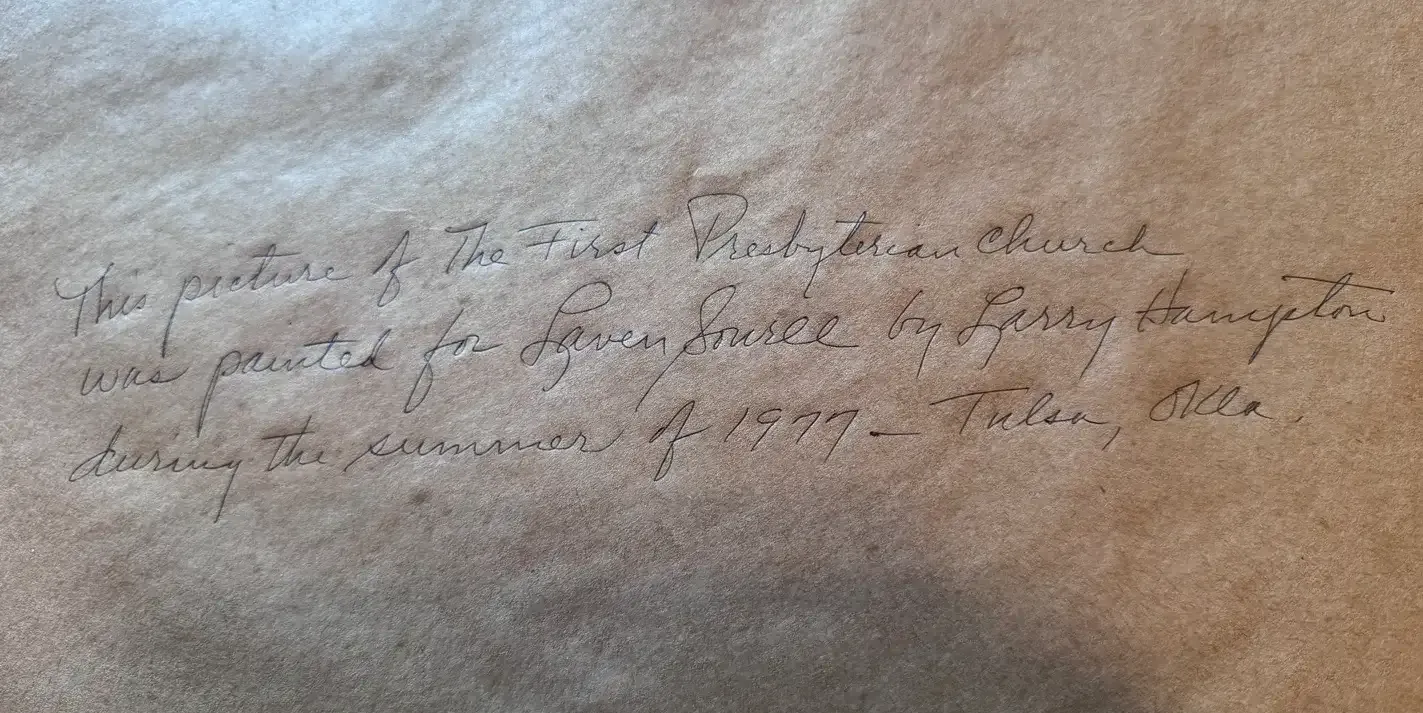 This picture of The First Presbyterian Church
was painted for Laven Sowell by Larry Hampton
during the summer of 1977 — Tulsa, Okla.